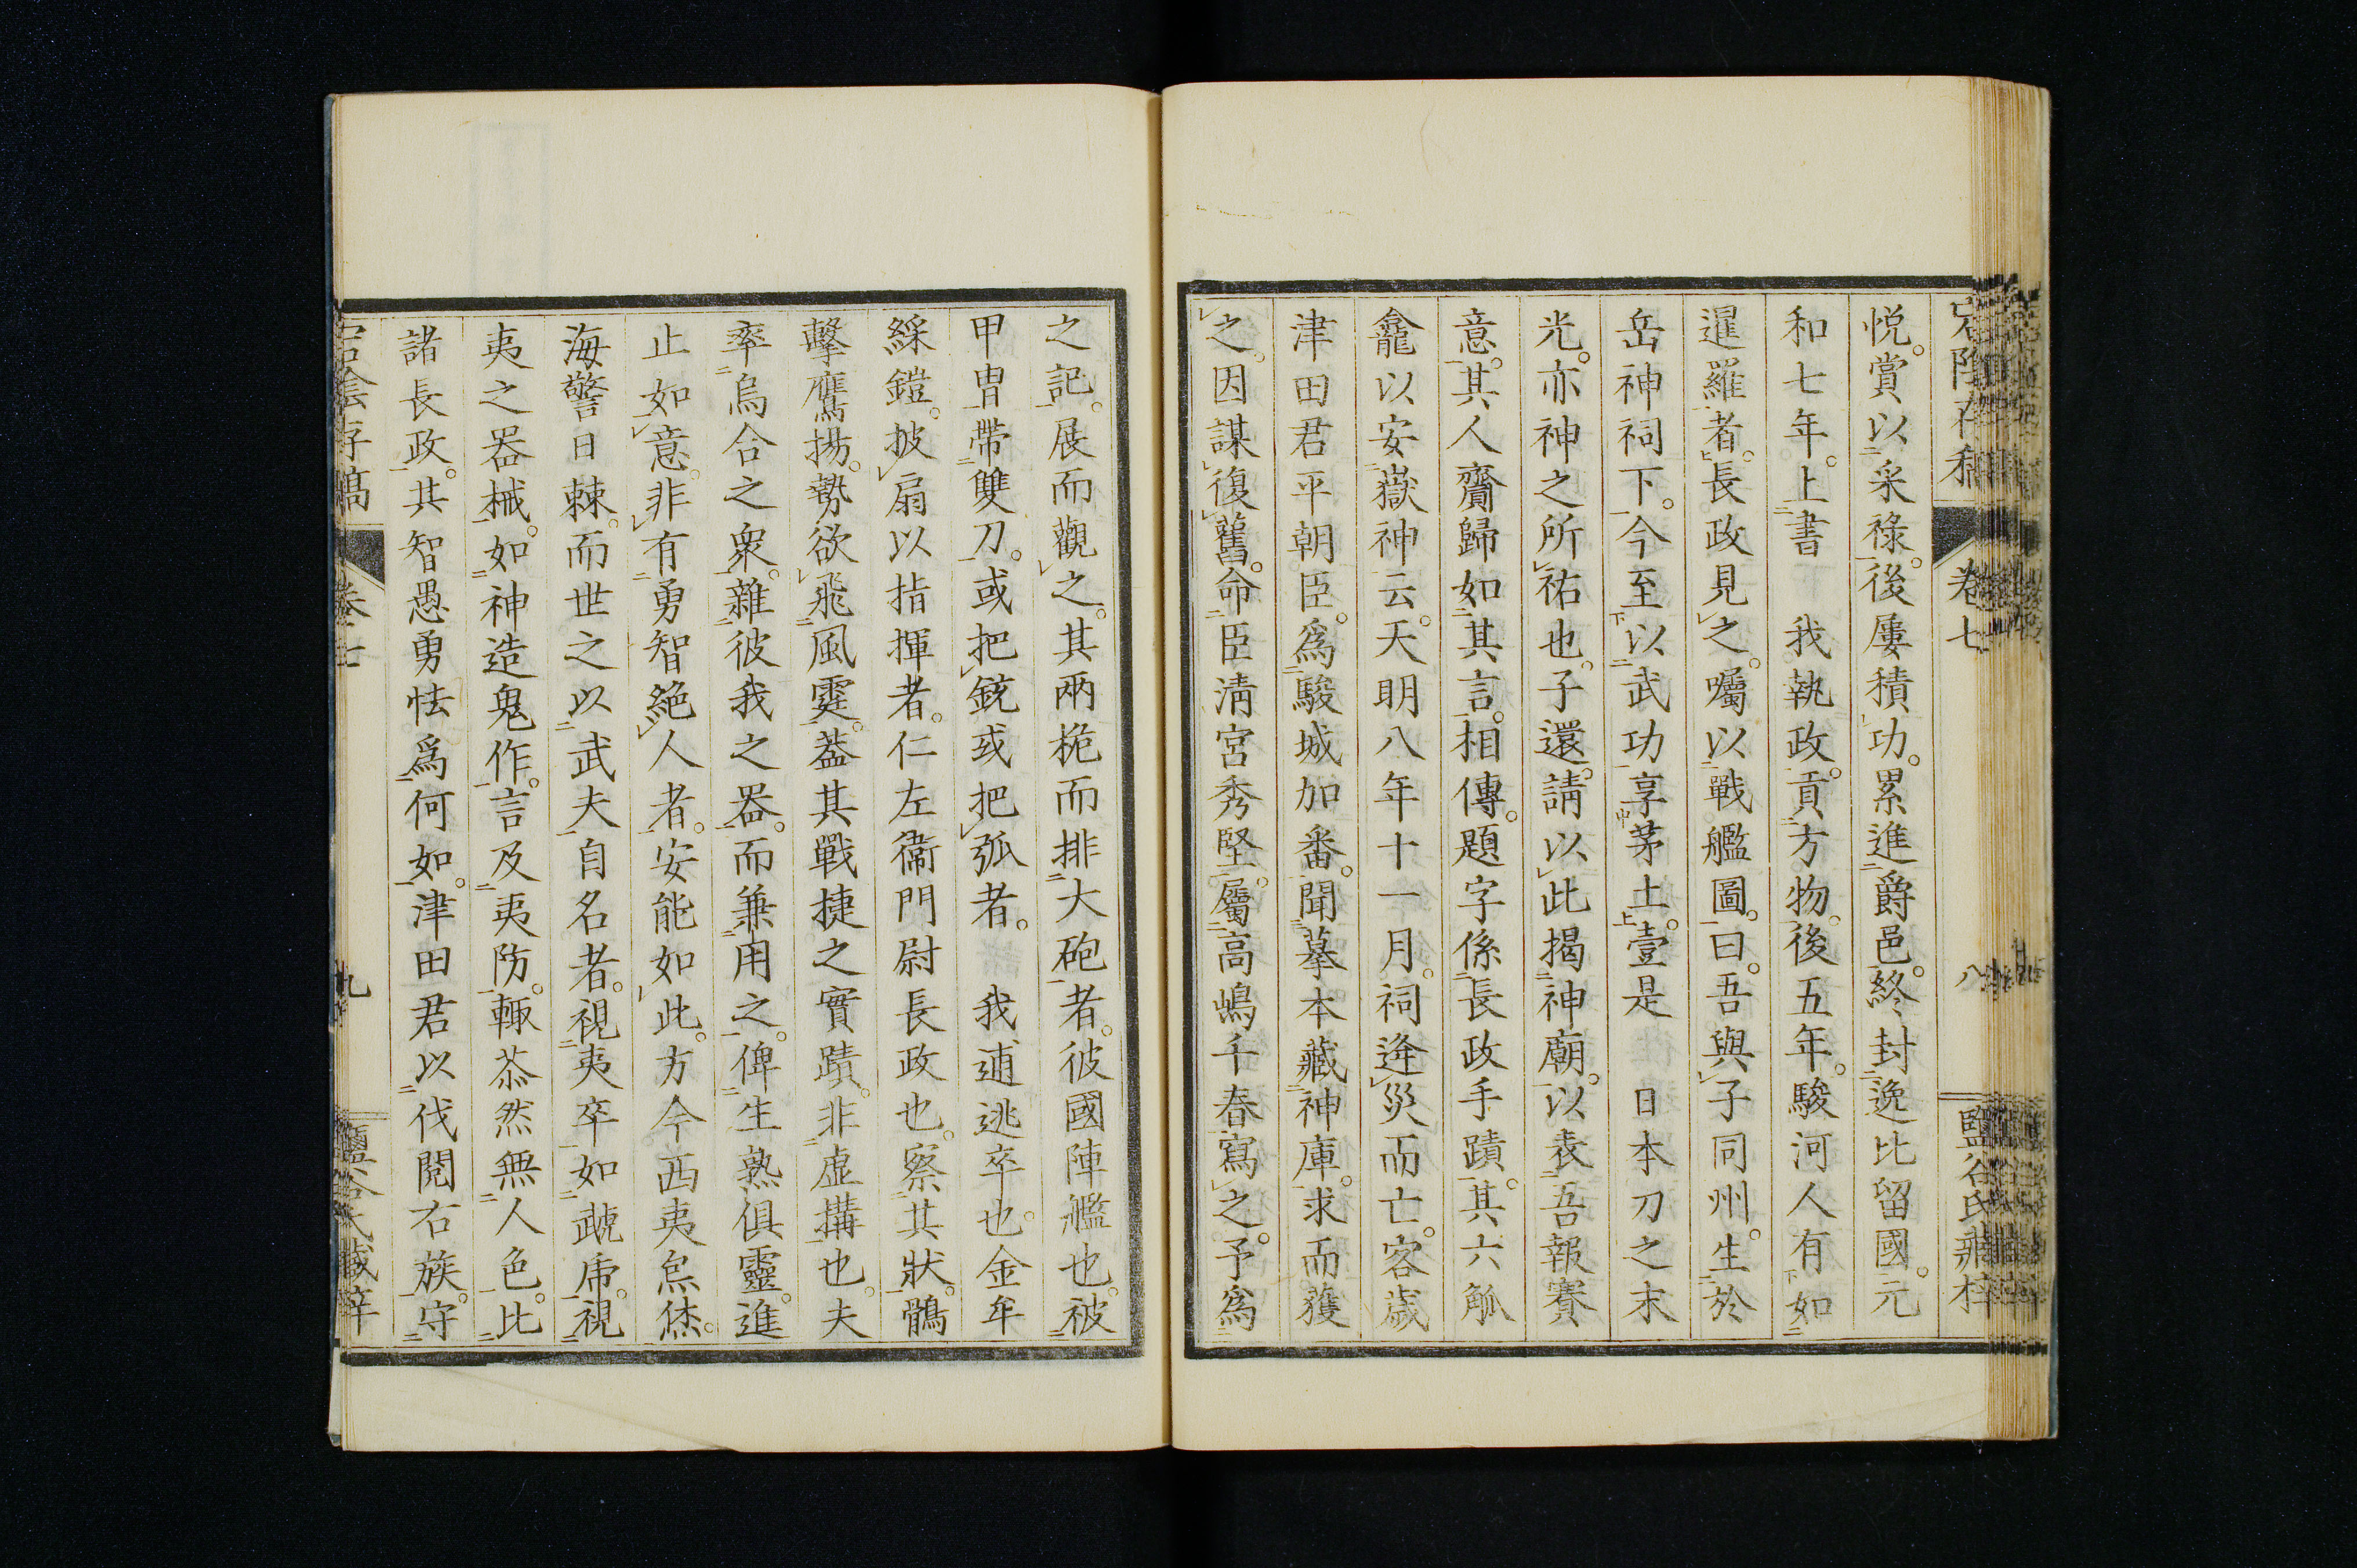 宕陰存稿 卷七 八 鹽谷氏藏梓
悦。賞以采祿。後屢積功。累進爵邑。終封逸比留國。元
和七年。上書 我執政。貢方物。後五年。駿河人有如
暹羅者。長政見之。囑以戰艦圖。曰。吾與子同州。生於
岳神祠下。今至以武功享茅土。壹是 日本刀之末
光。亦神之所祐也。子還。請以此揭神廟。以表吾報賽
意。其人齎歸如其言。相傳。題字係長政手蹟。其六觚
龕以安嶽神云。天明八年十一月。祠逢災而亡。客歲
津田君平朝臣。爲駿城加番。聞摹本藏神庫。求而獲
之。因謀復舊。命臣淸宮秀堅。屬高嶋千春寫之。予爲
之記。展而觀之。其兩桅而排大砲者。彼國陣艦也。被
甲冑帶雙刀。或把銃或把弧者。 我逋逃卒也。金牟
綵鎧。披扇以指揮者。仁左衞門尉長政也。察其狀。鶻
擊鷹揚。勢欲飛風霆。蓋其戰捷之實蹟。非虛搆也。夫
率烏合之衆。雜彼我之器。而兼用之。俾生熟俱靈。進
止如意。非有勇智絶人者。安能如此。方今西夷炰烋。
海警日棘。而世之以武夫自名者。視夷卒如虓虎。視
夷之器械。如神造鬼作。言及夷防。輙茶然無人色。比
諸長政。其智愚勇怯爲何如。津田君以伐閲右族。守
宕陰存稿 卷七 九 鹽谷氏藏梓